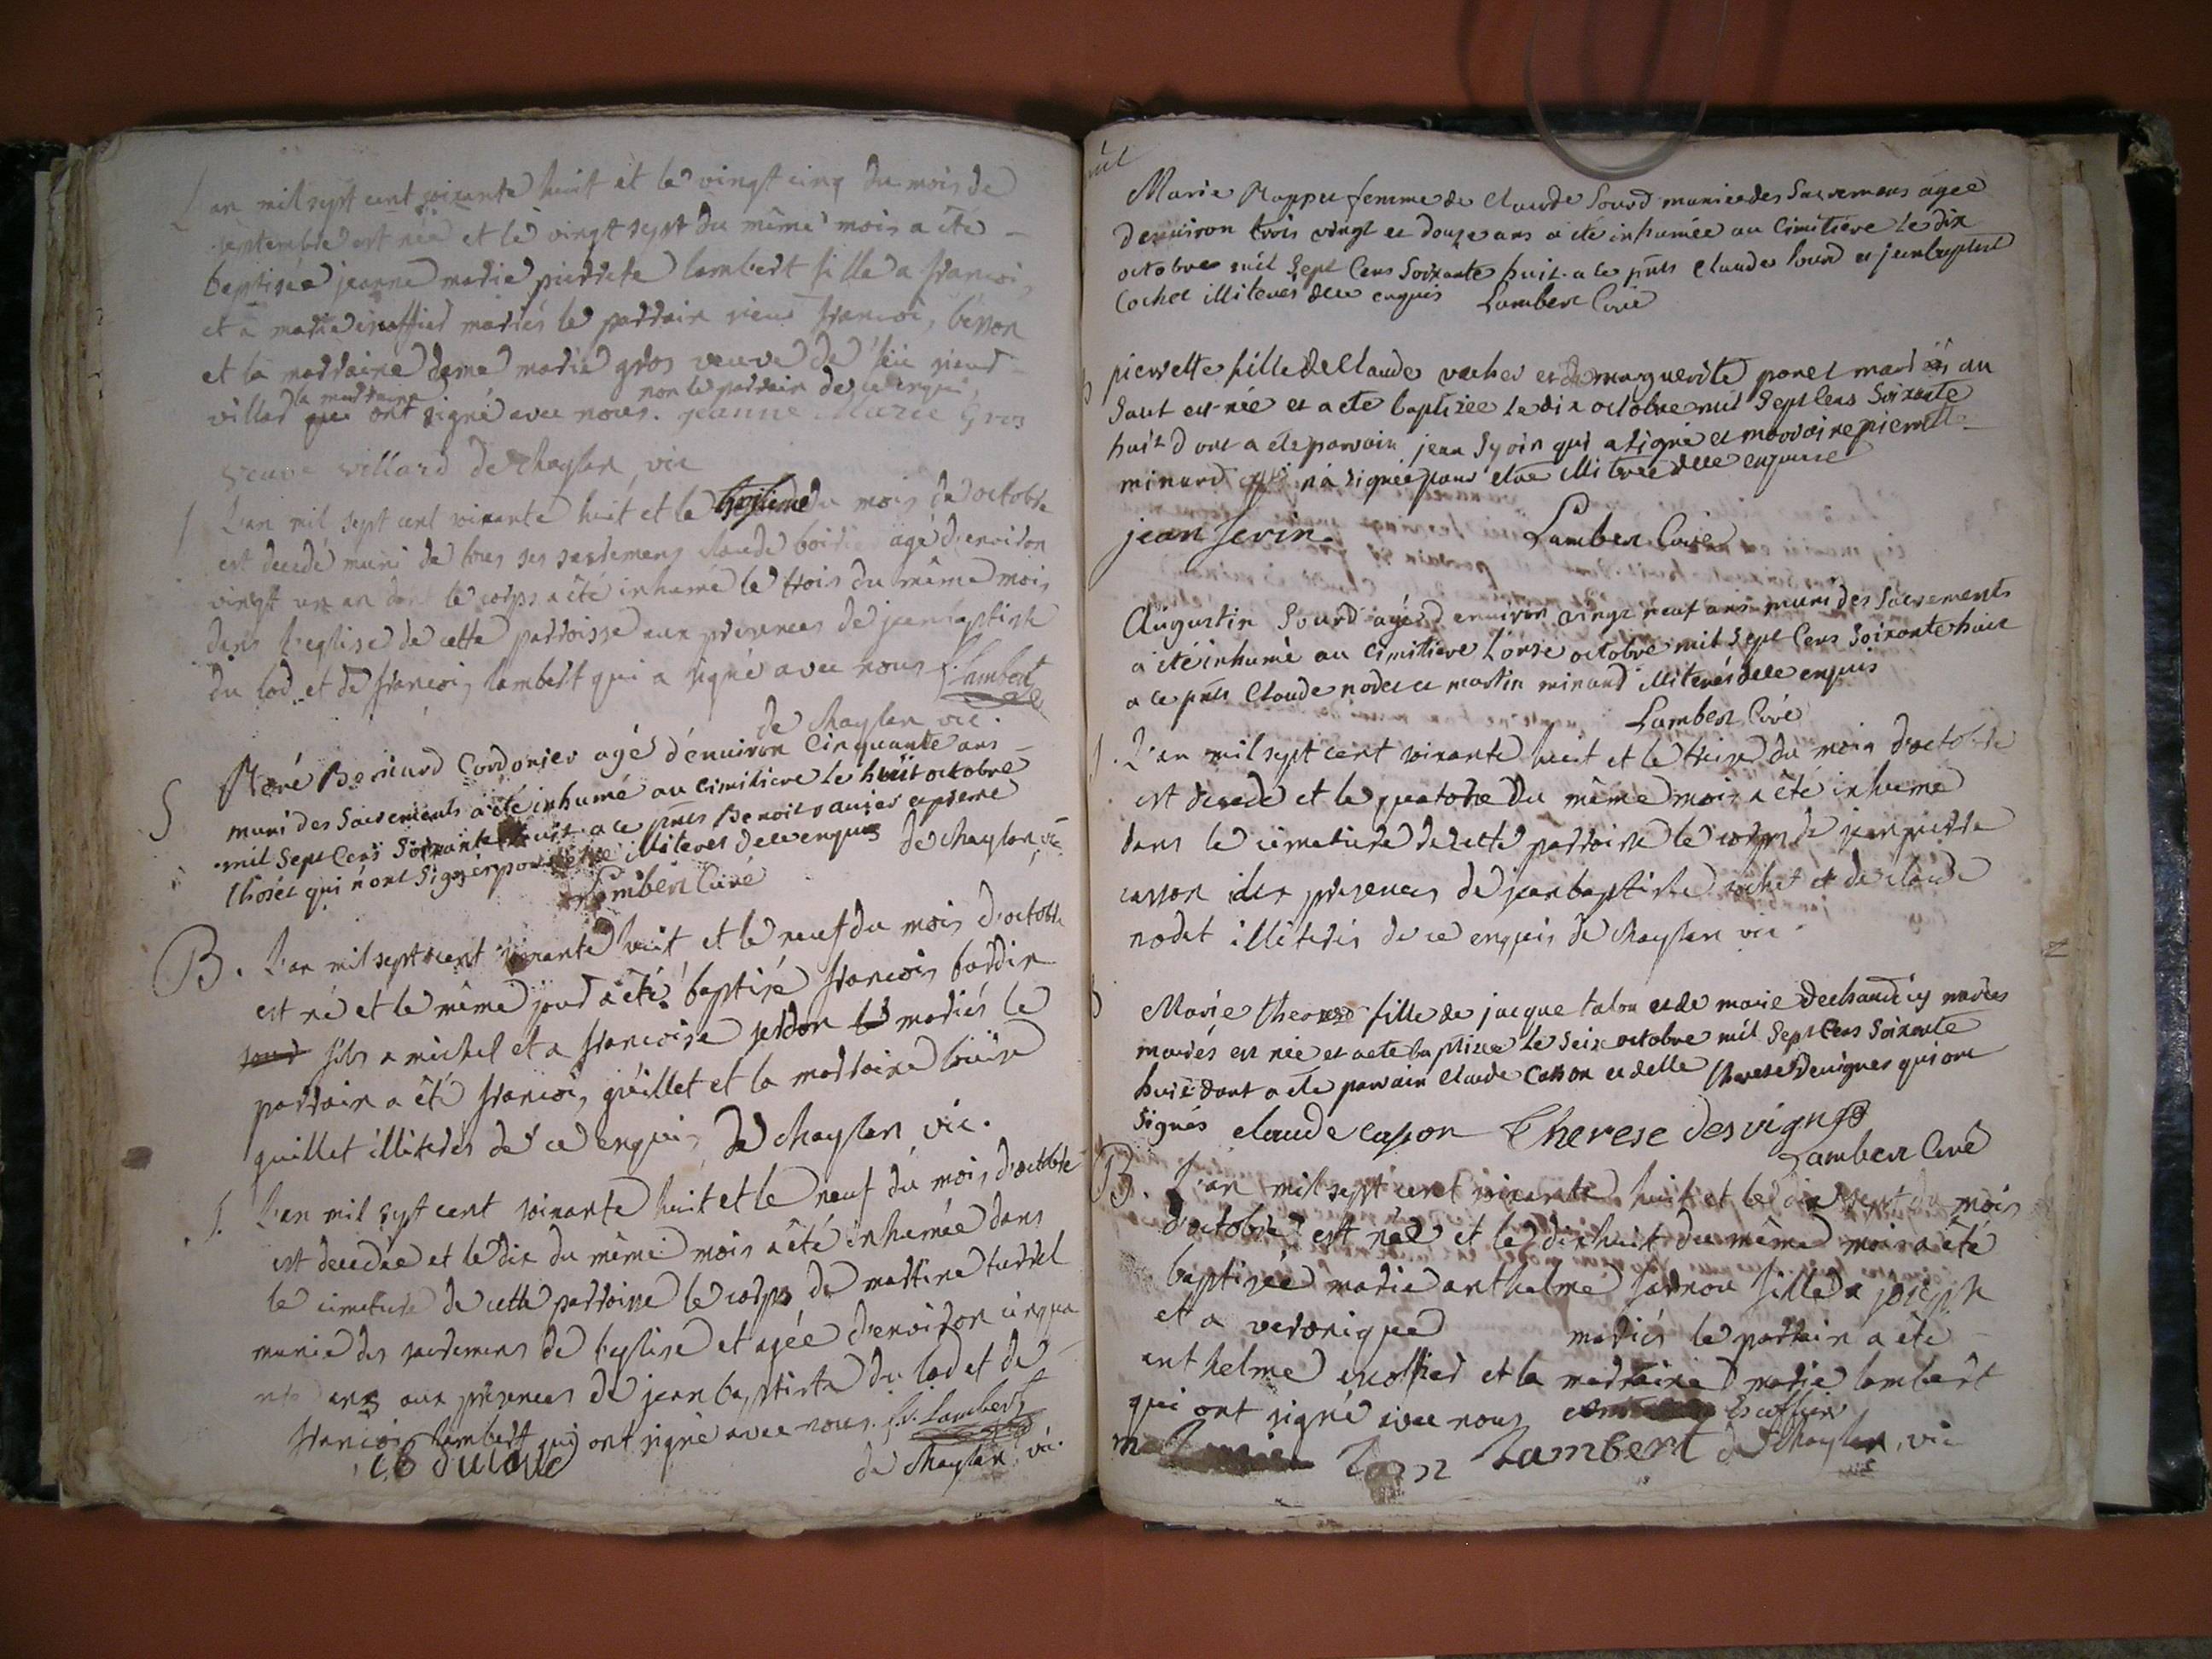 L'an mil sept cent soixante huit et le vingt cinq du mois de
septembre est née et le vingt sept du même mois a été
baptisée jeanne marie pierrete lambert fille a francois
et a marie escoffier mariés le parrain sieur francois besson
et la marraine dame marie gros veuve de feu sieur
la marraine non le parrain de ce enquis
villard qui ont signé avec nous. jeanne Marie Gros
veuve villard de chaylan vic
S L'an mil sept cent soixante huit et le du mois d'octobre
est decedé muni de tous ses sacremens claude agé d'environ
vingt un an dont le corps a été inhumé le trois du même mois
dans l'eglise de cette parroisse aux presences de jean baptiste
du lod et de francois lambert qui a signé avec nous f. Lambert
de chaylan vic.
S René Bernard Cordonier agé d'environ Cinquante ans
muni des Sacrements a été inhumé au Cimitiere le huit octobre
mil Sept Cens Soixante huit a ce pnts Benoit et pierre
thoset qui n'ont Signés pour être illiterés de ce enquis de chaylan vic
Lambert Curé
B. L'an mil sept cent soixante huit et le neuf du mois d'octobre
est né et le même jour a été baptisé francois bardin
fils a michel et a francoise mariés le
parrain a été francois guillet et la marraine louise
guillet illiterés de ce enquis de chaylan vic.
S. L'an mil sept cent soixante huit et le neuf du mois d'octobre
est decedée et le dix du même mois a été inhumée dans
le cimetiere de cette parroisse le corps de martine turrel
munie des sacremens de l'eglise et agée d'environ cinqua
nte ans aux presences de jean baptiste du lod et de
francois lambert qui ont signé avec nous. f. Lambert
de chaylan, vic.
Marie femme de Claude Sourd munie des Sacremens agée
d'environ trois vingt et douze ans a été inhumée au Cimitiere le dix
octobre mil Sept Cens Soixante huit a ce pnts Claude Sourd et jeanbaptist
Cochet illiterés de ce enquis Lambert Curé
pierrette fille de Claude vacher et de marguerite ponet mariés au
Saut est née et a ete baptisée Le dix octobre mil Sept Cens Soixante
huit dont a ete parrain jean qui a Signé et marraine pierrette
minard qui n'a signée pour etre illiterée de ce enquise
jean Serin. Lambert Curé
Augustin Sourd agé d'environ vingt neuf ans muni des Sacrements
a été inhumé au Cimitiere L'onze octobre mil Sept Cens Soixante huit
a ce pnts Claude nodet et martin minard illiterés de ce enquis
Lambert Curé
S. L'an mil sept cent soixante huit et le treize du mois d'octobre
est decedé et le quatorze du même mois a été inhumé
dans le cimetiere de cette parroisse le corps de jean pierre
casson és presences de jean baptiste cochet et de claude
nodet illiterés de ce enquis de chaylan vic.
Marie therese fille de jacque talon et de marie
mariés est née et a ete baptisée Le Seize octobre mil Sept Cens Soixante
huit dont a ete parrain Claude Casson et delle therese Devignes qui ont
Signés claude casson Therese desvignes
Lambert Curé
B. L'an mil sept cent soixante huit et le dix sept du mois
d'octobre est née et le dix huit du même mois a été
baptisée marie anthelme fille a joseph
et a veronique mariés le parrain a été
anthelme escoffier et la marraine marie lambert
qui ont signé avec nous Escoffier
Lambert de chaylan, vic